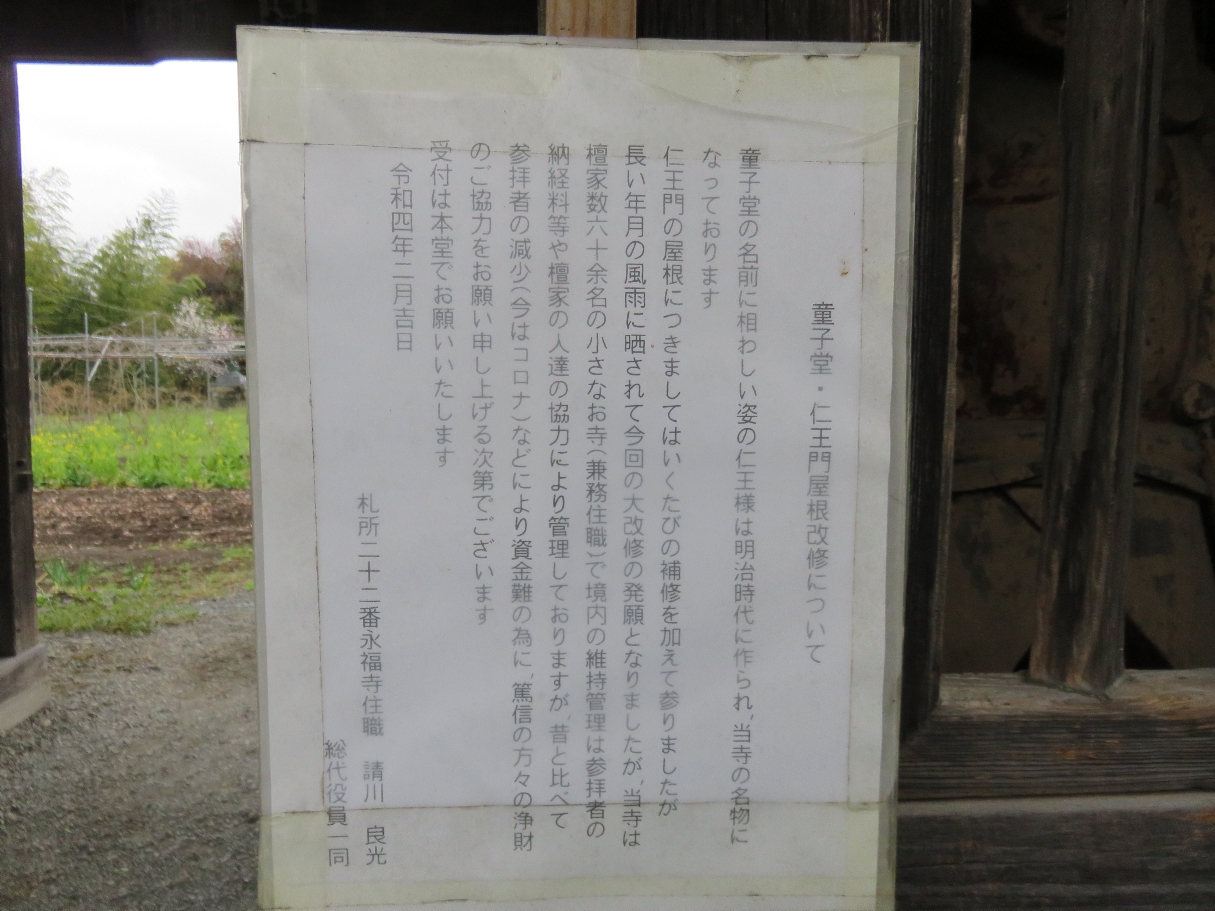 童子堂・仁王門屋根改修について
童子堂の名前に相わしい姿の仁王様は明治時代に作られ、当寺の名物に
なっております
仁王門の屋根につきましてはいくたびの補修を加えて参りましたが
長い年月の風雨に晒されて今回の大改修の発願となりましたが、当寺は
檀家数六十余名の小さなお寺(兼務住職)で境内の維持管理は参拝者の
納経料等や檀家の人達の協力により管理しておりますが、昔と比べて
参拝者の減少(今はコロナ)などにより資金難の為に、篤信の方々の浄財
のご協力をお願い申し上げる次第でございます
受付は本堂でお願いいたします
令和四年二月吉日
札所二十二番永福寺住職 請川 良光
総代役員一同